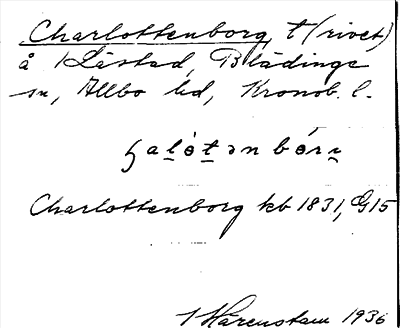 Charlottenborg, t (rivet)
å Låstad, Blädinge
sn, Allbo hd, Kronob. l.
Charlottenborg kb 1831, G15
Hårenstam 1936